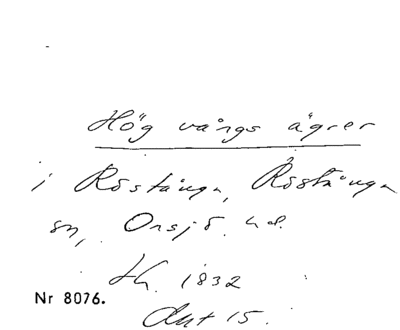 Högvångs ågrer
i Röstånga, Röstånga
sn, Onsjö hd.
Lh. 1832
Nr 8076.
Akt 15.